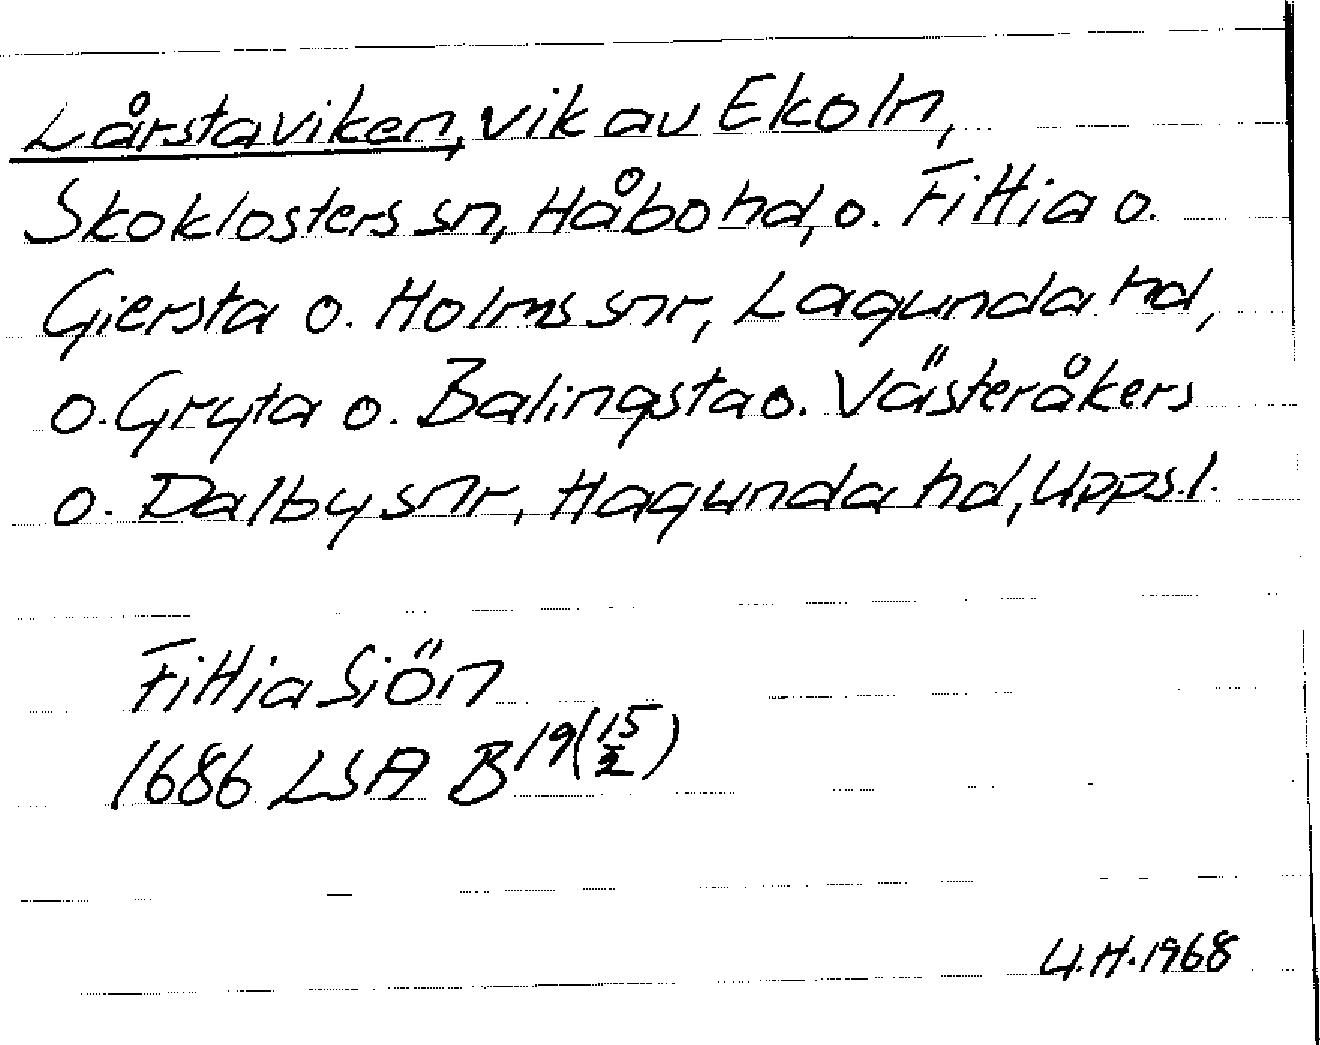 Lårstaviken, vik av Ekoln,
Skoklosters sn, Håbo hd, o. Fittia o.
Giersta o. Holms snr, Lagunda hd,
o. Gryta o. Balingsta o. Västeråkers
o. Dalby snr, Hagunda hd, Uppsl.
Fittia Siön
1686 LSA B 19 (15/2)
U.H. 1968